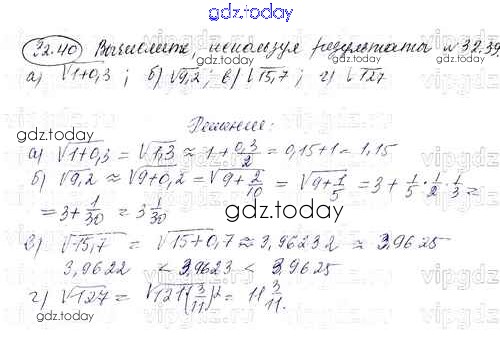 gdz.today
32.40 Вычислите, используя результаты №32.39
а) √1+0,3 ; б) √9,2 ; в) √15,7 ; г) √127
gdz.today
Решение:
а) √1+0,3 = √1,3 ≈ 1 + 0,3/2 = 0,15+1 = 1,15
б) √9,2 ≈ √9+0,2 = √9+2/10 = √9+1/5 = 3 + 1/5 · 1/2 · 1/3 =
= 3 + 1/30 = 3 1/30
gdz.today
в) √15,7 = √15+0,7 ≈ 3,96232 ≈ 3,9625
3,9622 < 3,9623 < 3,9625
г) √127 = √121(3/11)² = 11 3/11.
gdz.today